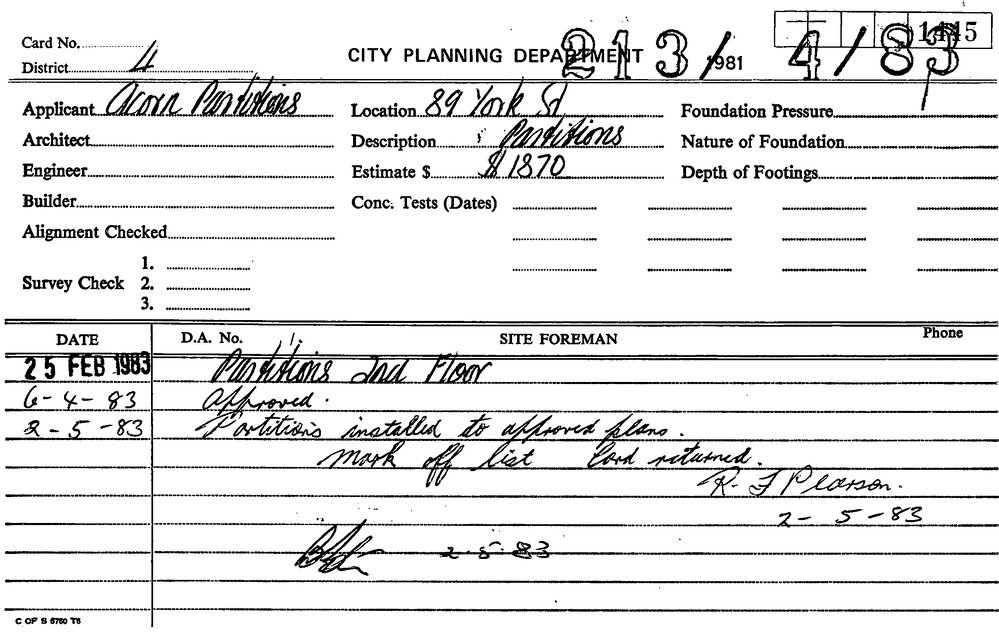 1445
Card No.
District 4
CITY PLANNING DEPARTMENT 213/1981 4/83
Applicant Acorn Partitions Location 89 York St Foundation Pressure
Architect Description Partitions Nature of Foundation
Engineer Estimate $ $1870 Depth of Footings
Builder Conc. Tests (Dates)
Alignment Checked
1.
Survey Check 2.
3.
DATE D.A. No. SITE FOREMAN Phone
25 FEB 1983 Partitions 2nd Floor
6-4-83 Approved.
2-5-83 Partitions installed to approved plans.
Mark off list Card returned.
R. J Pearson.
2-5-83
2.5.83
C OF S 6760 T6